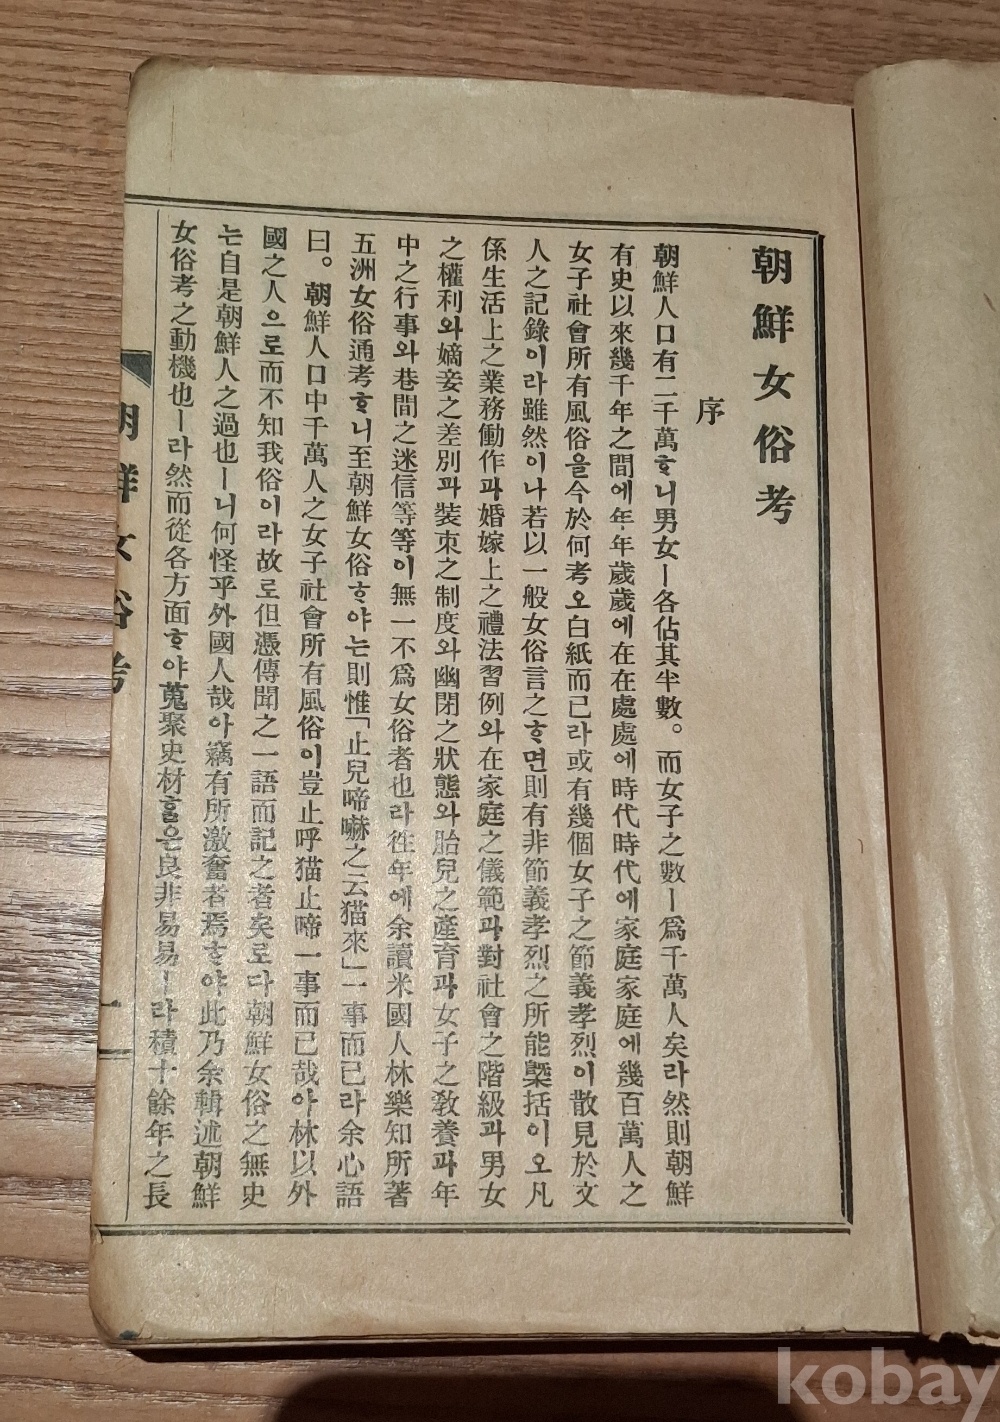 朝鮮女俗考
序
朝鮮人口有二千萬ᄒᆞ니男女ㅣ各佔其半數。而女子之數ㅣ爲千萬人矣라然則朝鮮
有史以來幾千年之間에年年歲歲에在在處處에時代時代에家庭家庭에幾百萬人之
女子社會所有風俗을今於何考오白紙而已라或有幾個女子之節義孝烈이散見於文
人之記錄이라雖然이나若以一般女俗言之ᄒᆞ면則有非節義孝烈之所能槩括이오凡
係生活上之業務働作과婚嫁上之禮法習例와在家庭之儀範과對社會之階級과男女
之權利와嫡妾之差別과裝束之制度와幽閉之狀態와胎兒之產育과女子之敎養과年
中之行事와巷間之迷信等等이無一不爲女俗者也라徃年에余讀米國人林樂知所著
五洲女俗通考ᄒᆞ니至朝鮮女俗ᄒᆞ야는則惟「止兒啼嚇之云猫來」一事而已라余心語
曰。朝鮮人口中千萬人之女子社會所有風俗이豈止呼猫止啼一事而已哉아林以外
國之人으로而不知我俗이라故로但憑傳聞之一語而記之者矣로다朝鮮女俗之無史
는自是朝鮮人之過也ㅣ니何怪乎外國人哉아竊有所激奮者焉ᄒᆞ야此乃余輯述朝鮮
女俗考之動機也ㅣ라然而從各方面ᄒᆞ야蒐聚史材ᄒᆞᆯ은良非易易ㅣ라積十餘年之長
朝鮮女俗考
一
kobay